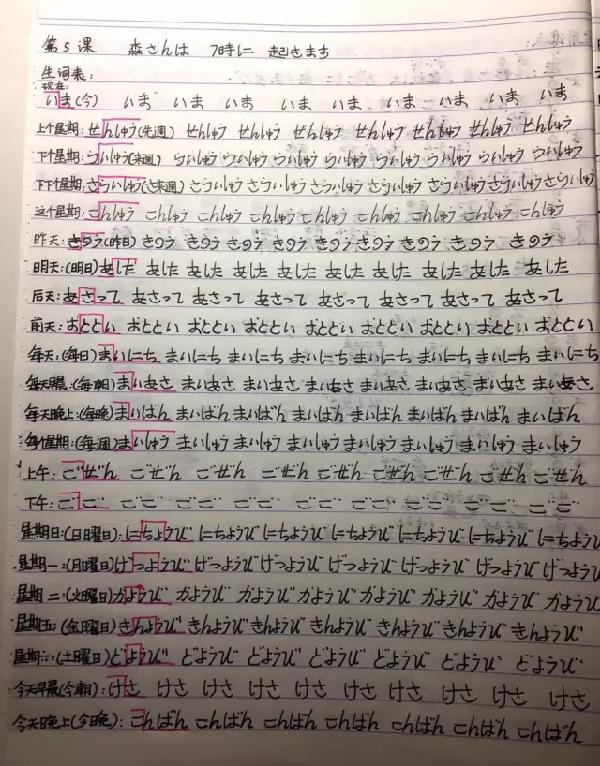 第5课 森さんは 7時に 起きます
生词表:
现在:
いま(今) いま いま いま いま いま いま いま いま いま
上个星期: せんしゅう(先週) せんしゅう せんしゅう せんしゅう せんしゅう せんしゅう せんしゅう せんしゅう
下个星期: らいしゅう(来週) らいしゅう らいしゅう らいしゅう らいしゅう らいしゅう らいしゅう らいしゅう
下下个星期: さらいしゅう(さ来週) さらいしゅう さらいしゅう さらいしゅう さらいしゅう さらいしゅう さらいしゅう さらいしゅう
这个星期: こんしゅう こんしゅう こんしゅう こんしゅう こんしゅう こんしゅう こんしゅう こんしゅう こんしゅう
昨天: きのう(昨日) きのう きのう きのう きのう きのう きのう きのう きのう
明天:(明日) あした あした あした あした あした あした あした あした あした
后天: あさって あさって あさって あさって あさって あさって あさって あさって
前天: おととい おととい おととい おととい おととい おととい おととい おととい おととい
每天:(毎日) まいにち まいにち まいにち まいにち まいにち まいにち まいにち まいにち
每天早晨:(毎朝) まいあさ まいあさ まいあさ まいあさ まいあさ まいあさ まいあさ まいあさ
每天晚上:(毎晩) まいばん まいばん まいばん まいばん まいばん まいばん まいばん まいばん
每个星期:(毎週) まいしゅう まいしゅう まいしゅう まいしゅう まいしゅう まいしゅう まいしゅう まいしゅう
上午: ごぜん ごぜん ごぜん ごぜん ごぜん ごぜん ごぜん ごぜん ごぜん
下午: ごご ごご ごご ごご ごご ごご ごご ごご ごご ごご
星期日:(日曜日): にちようび にちようび にちようび にちようび にちようび にちようび にちようび
星期一:(月曜日) げつようび げつようび げつようび げつようび げつようび げつようび げつようび
星期二:(火曜日) かようび かようび かようび かようび かようび かようび かようび かようび
星期五:(金曜日) きんようび きんようび きんようび きんようび きんようび きんようび きんようび
星期六:(土曜日) どようび どようび どようび どようび どようび どようび どようび
今天早晨(今朝): けさ けさ けさ けさ けさ けさ けさ けさ けさ
今天晚上(今日晚): こんばん こんばん こんばん こんばん こんばん こんばん こんばん